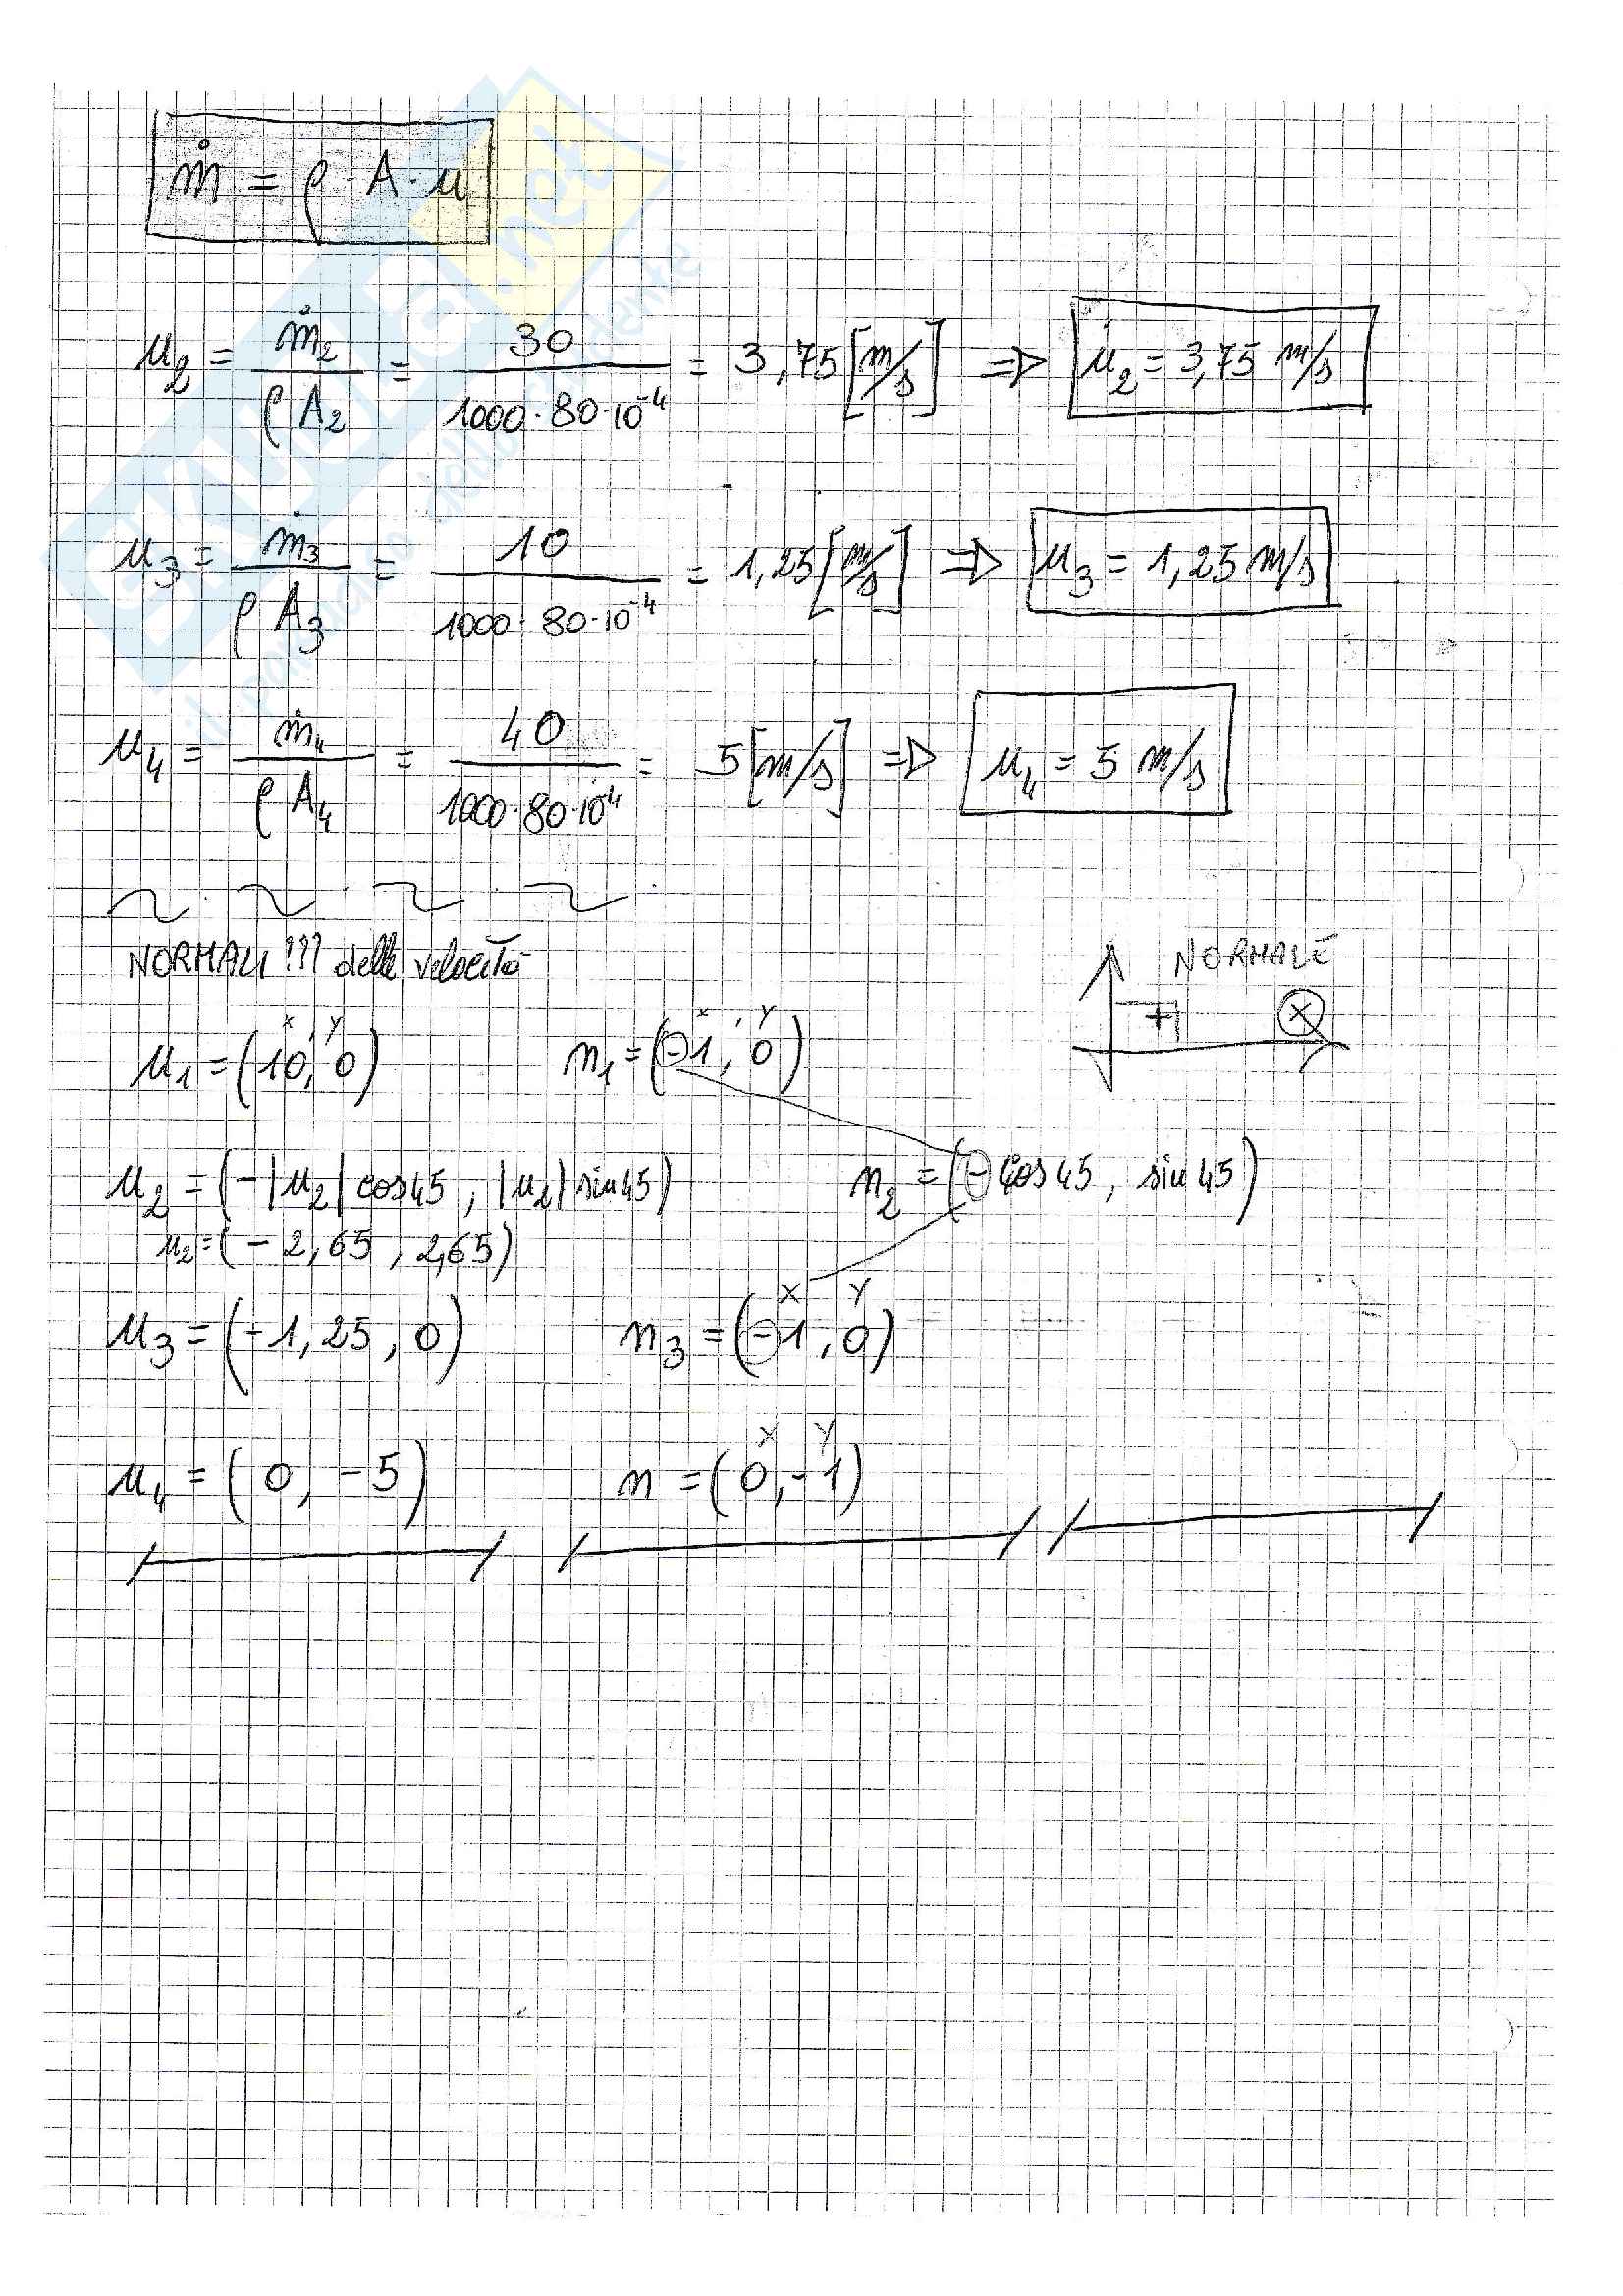 ṁ = ρ · A · u
u₂ = ṁ₂ / ρ A₂ = 30 / 1000 · 80 · 10⁻⁴ = 3,75 [m/s] ⇒ u₂ = 3,75 m/s
u₃ = ṁ₃ / ρ A₃ = 10 / 1000 · 80 · 10⁻⁴ = 1,25 [m/s] ⇒ u₃ = 1,25 m/s
u₄ = ṁ₄ / ρ A₄ = 40 / 1000 · 80 · 10⁻⁴ = 5 [m/s] ⇒ u₄ = 5 m/s
NORMALI ??? delle velocità
NORMALE
+
x
x , y
x , y
u₁ = (10, 0)
n₁ = (-1, 0)
u₂ = (-|u₂| cos45 , |u₂| sin45)
n₂ = (- cos45 , sin45)
u₂ = (- 2,65 , 2,65)
X Y
u₃ = (-1,25 , 0)
n₃ = (-1 , 0)
X Y
u₄ = (0, -5)
n = (0, -1)